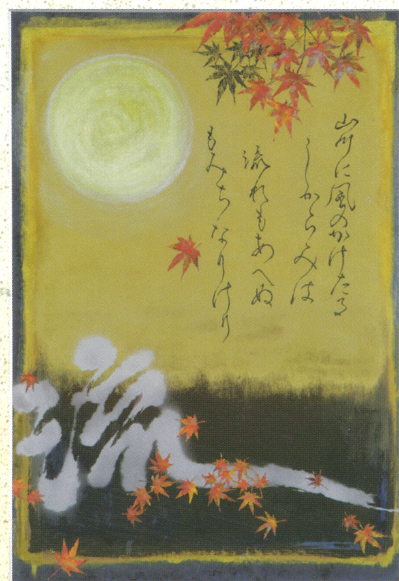 山川に風のかけたる
しからみは
流れもあへぬ
もみちなりけり
流